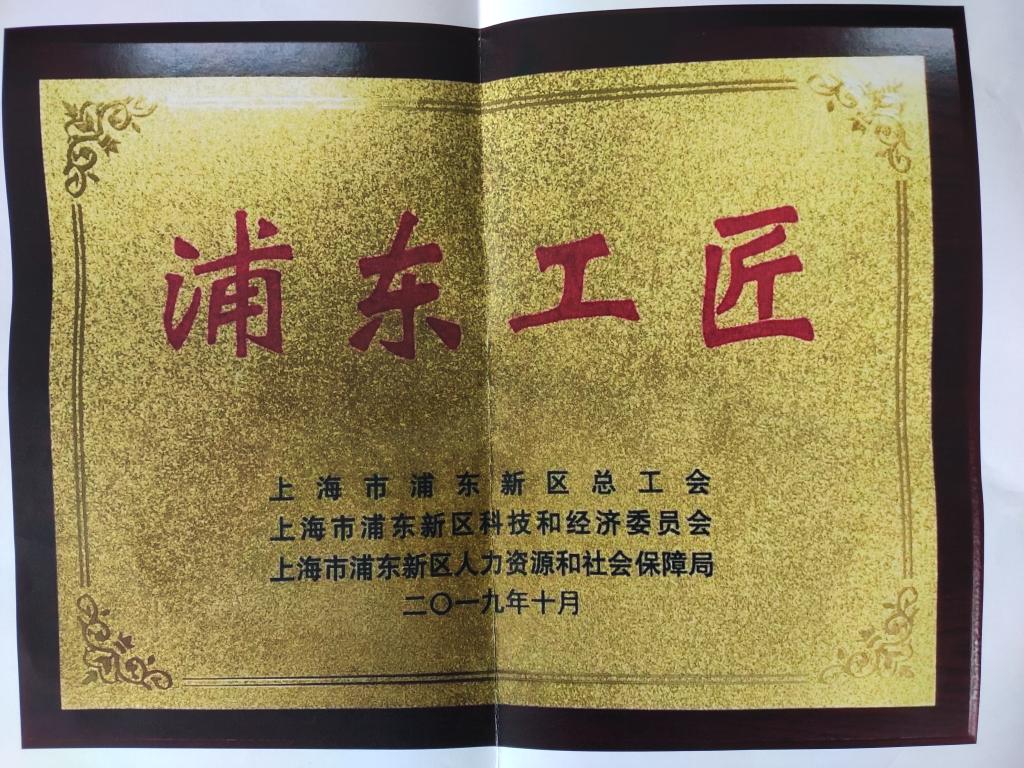 浦东工匠
上海市浦东新区总工会
上海市浦东新区科技和经济委员会
上海市浦东新区人力资源和社会保障局
二〇一九年十月